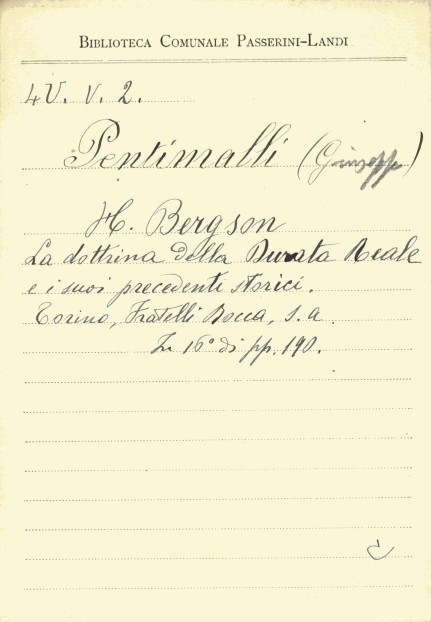 BIBLIOTECA COMUNALE PASSERINI-LANDI
4U. V. 2.
Pentimalli (Giuseppe)
H. Bergson
La dottrina della Durata Reale
e i suoi precedenti storici.
Torino, Fratelli Bocca, s.a.
In 16° di pp. 190.